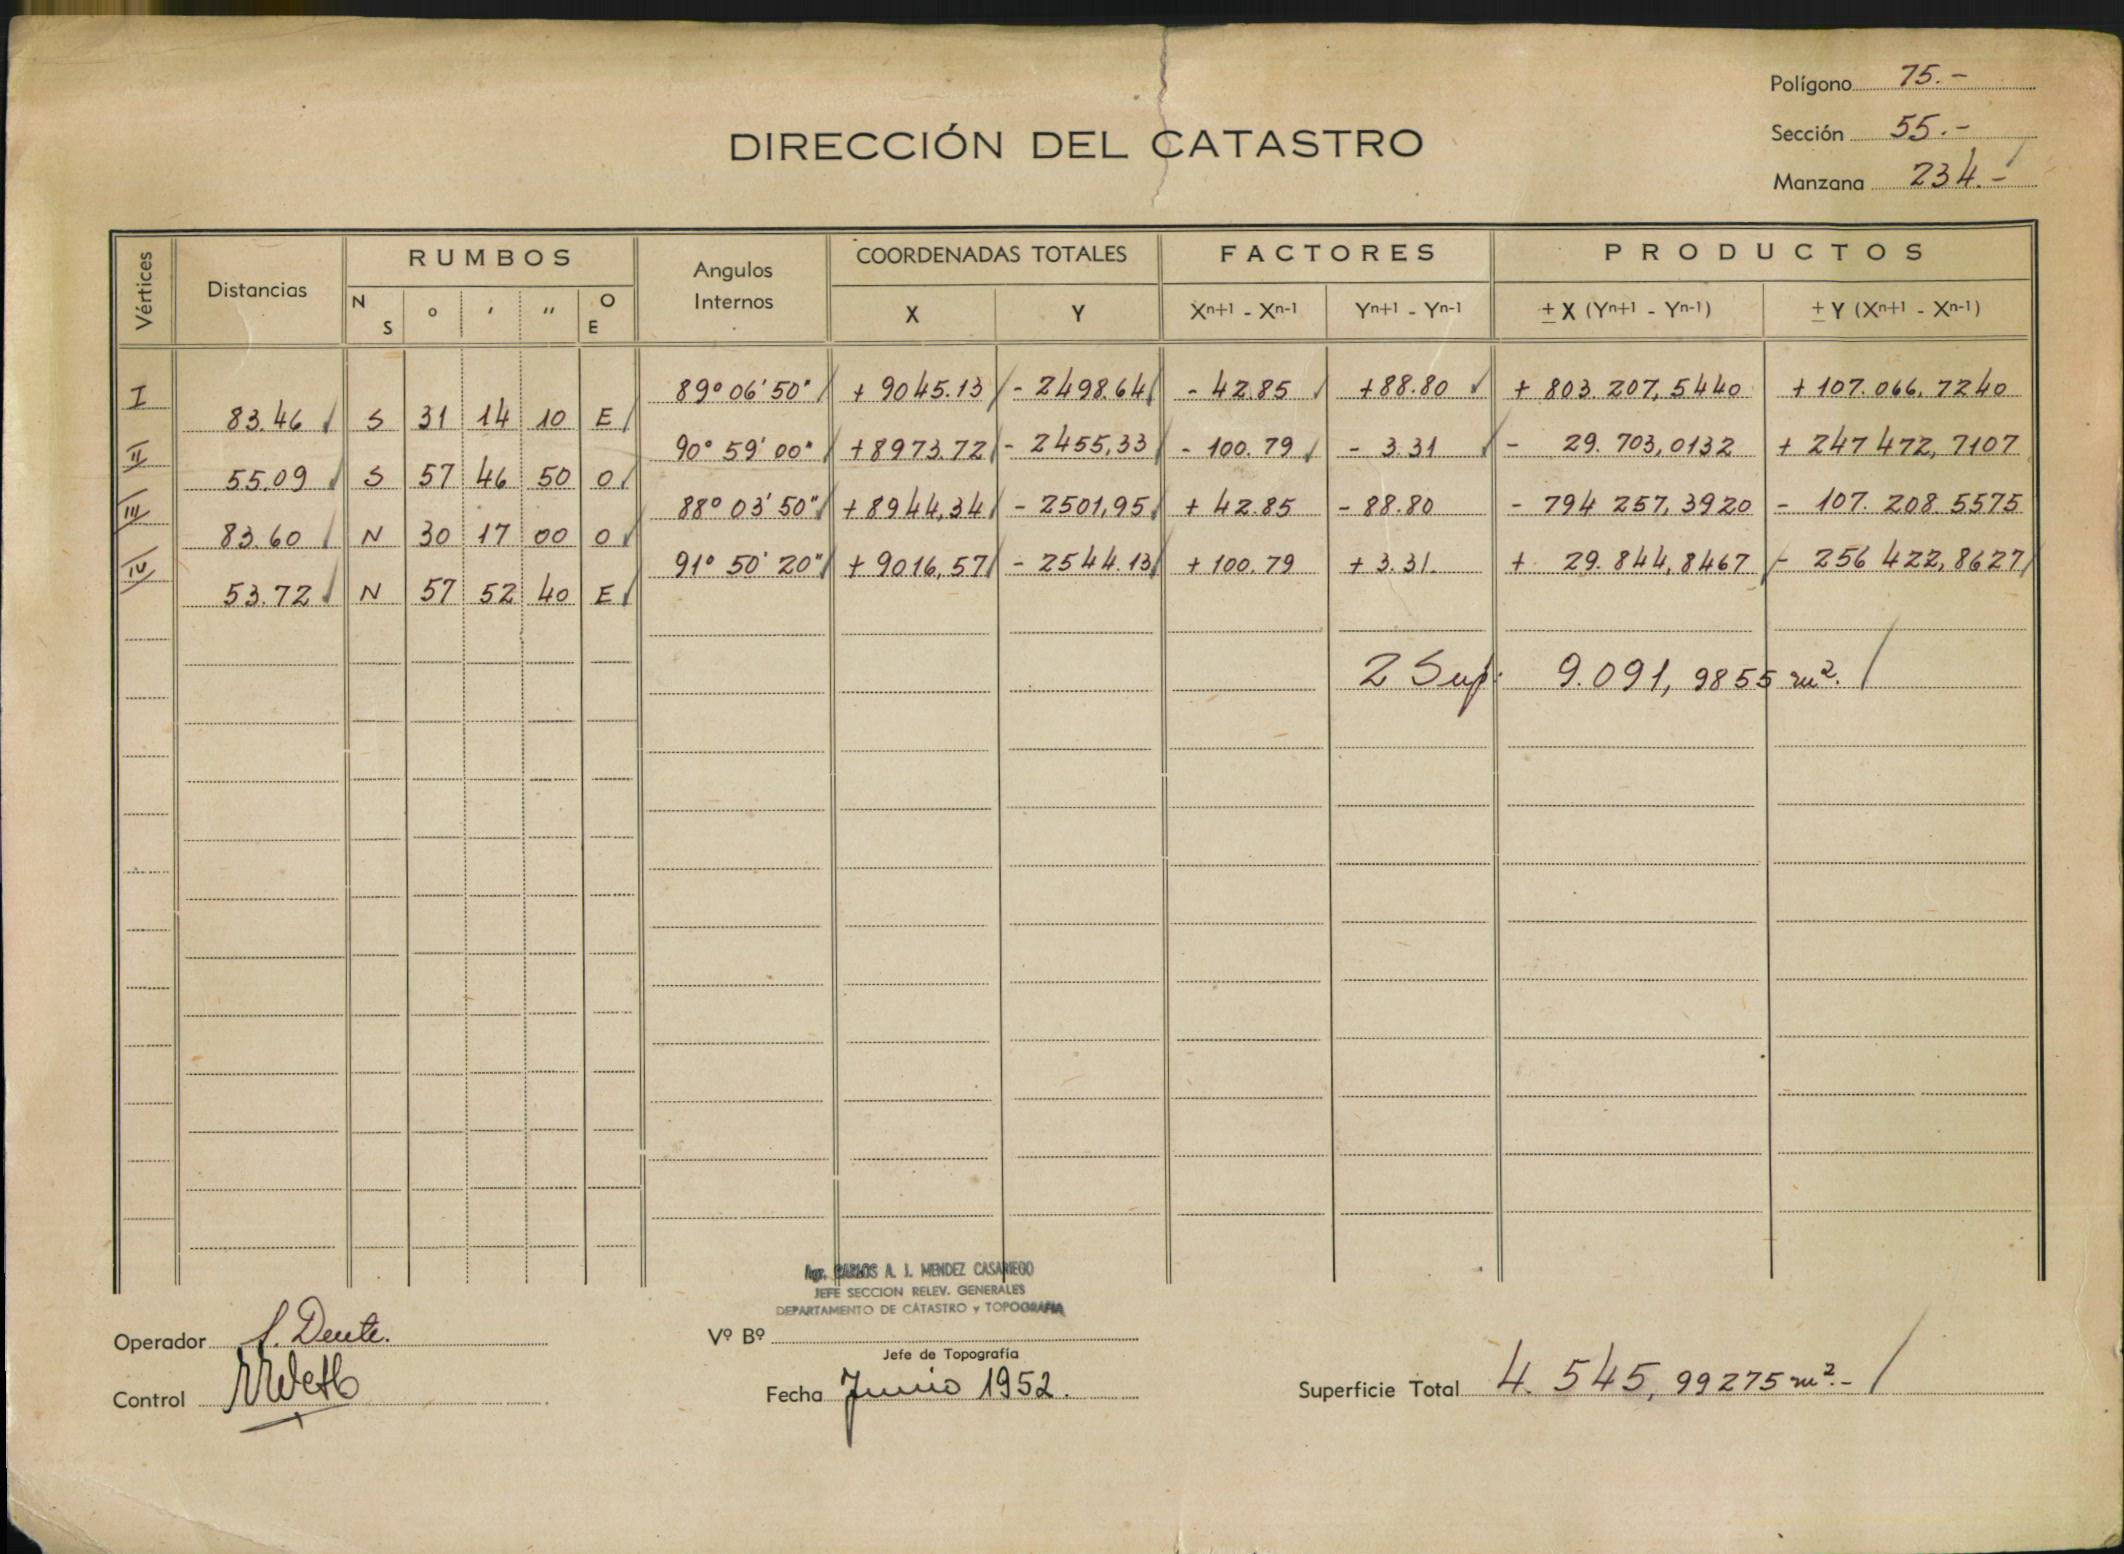 Polígono 75.-
DIRECCIÓN DEL CATASTRO
Sección 55.-
Manzana 234.-
Vértices Distancias RUMBOS Angulos Internos COORDENADAS TOTALES FACTORES PRODUCTOS
N S ° ′ ″ O E X Y Xn+1 - Xn-1 Yn+1 - Yn-1 ± X (Yn+1 - Yn-1) ± Y (Xn+1 - Xn-1)
I 89° 06' 50" + 9045.13 - 2498.64 - 42.85 +88.80 + 803.207,5440 + 107.066,7240
83.46 S 31 14 10 E
II 90° 59' 00" +8973.72 - 2455,33 - 100.79 - 3.31 - 29.703,0132 + 247 472,7107
55.09 S 57 46 50 O
III 88° 03' 50" +8944,34 - 2501,95 + 42.85 - 88.80 - 794 257,3920 - 107.208.5575
83.60 N 30 17 00 O
IV 91° 50' 20" + 9016,57 - 2544.13 + 100.79 + 3.31. + 29.844,8467 - 256 422,8627
53.72 N 57 52 40 E
2 Sup: 9.091,9855 m².
Agr. CARLOS A. J. MENDEZ CASARIEGO
JEFE SECCION RELEV. GENERALES
DEPARTAMENTO DE CATASTRO y TOPOGRAFIA
Operador Dente.
Vº Bº
Jefe de Topografía
Control
Fecha Junio 1952.
Superficie Total 4.545,99275 m².-